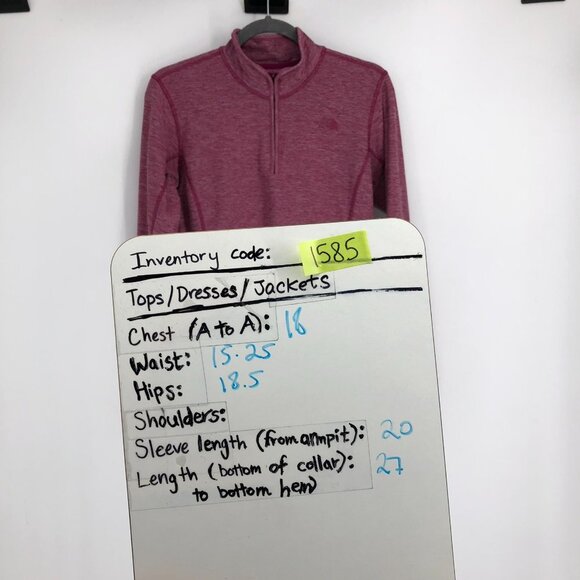 Inventory code: 1585
Tops/Dresses/Jackets
Chest (A to A): 18
Waist: 15.25
Hips: 18.5
Shoulders:
Sleeve length (from armpit): 20
Length (bottom of collar): 27
to bottom hem)